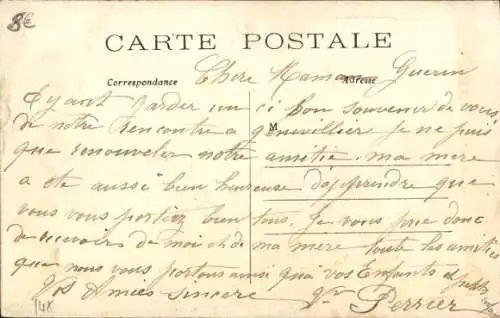 8€
CARTE POSTALE
Correspondance
Adresse
Chere Maman Guerin
Eyant garder un si bon souvenir de vous,
de notre rencontre a genevillier je ne puis
M
que renouveler notre amitié. ma mere
a ete aussi bien heureuse d'apprendre que
vous vous portiez bien tous. Je vous prie donc
de recevoir de moi et de ma mere toute les amities
que nous vous portons ainsi qua vos Enfants et petits
Vos Amies sincere Perrier
148